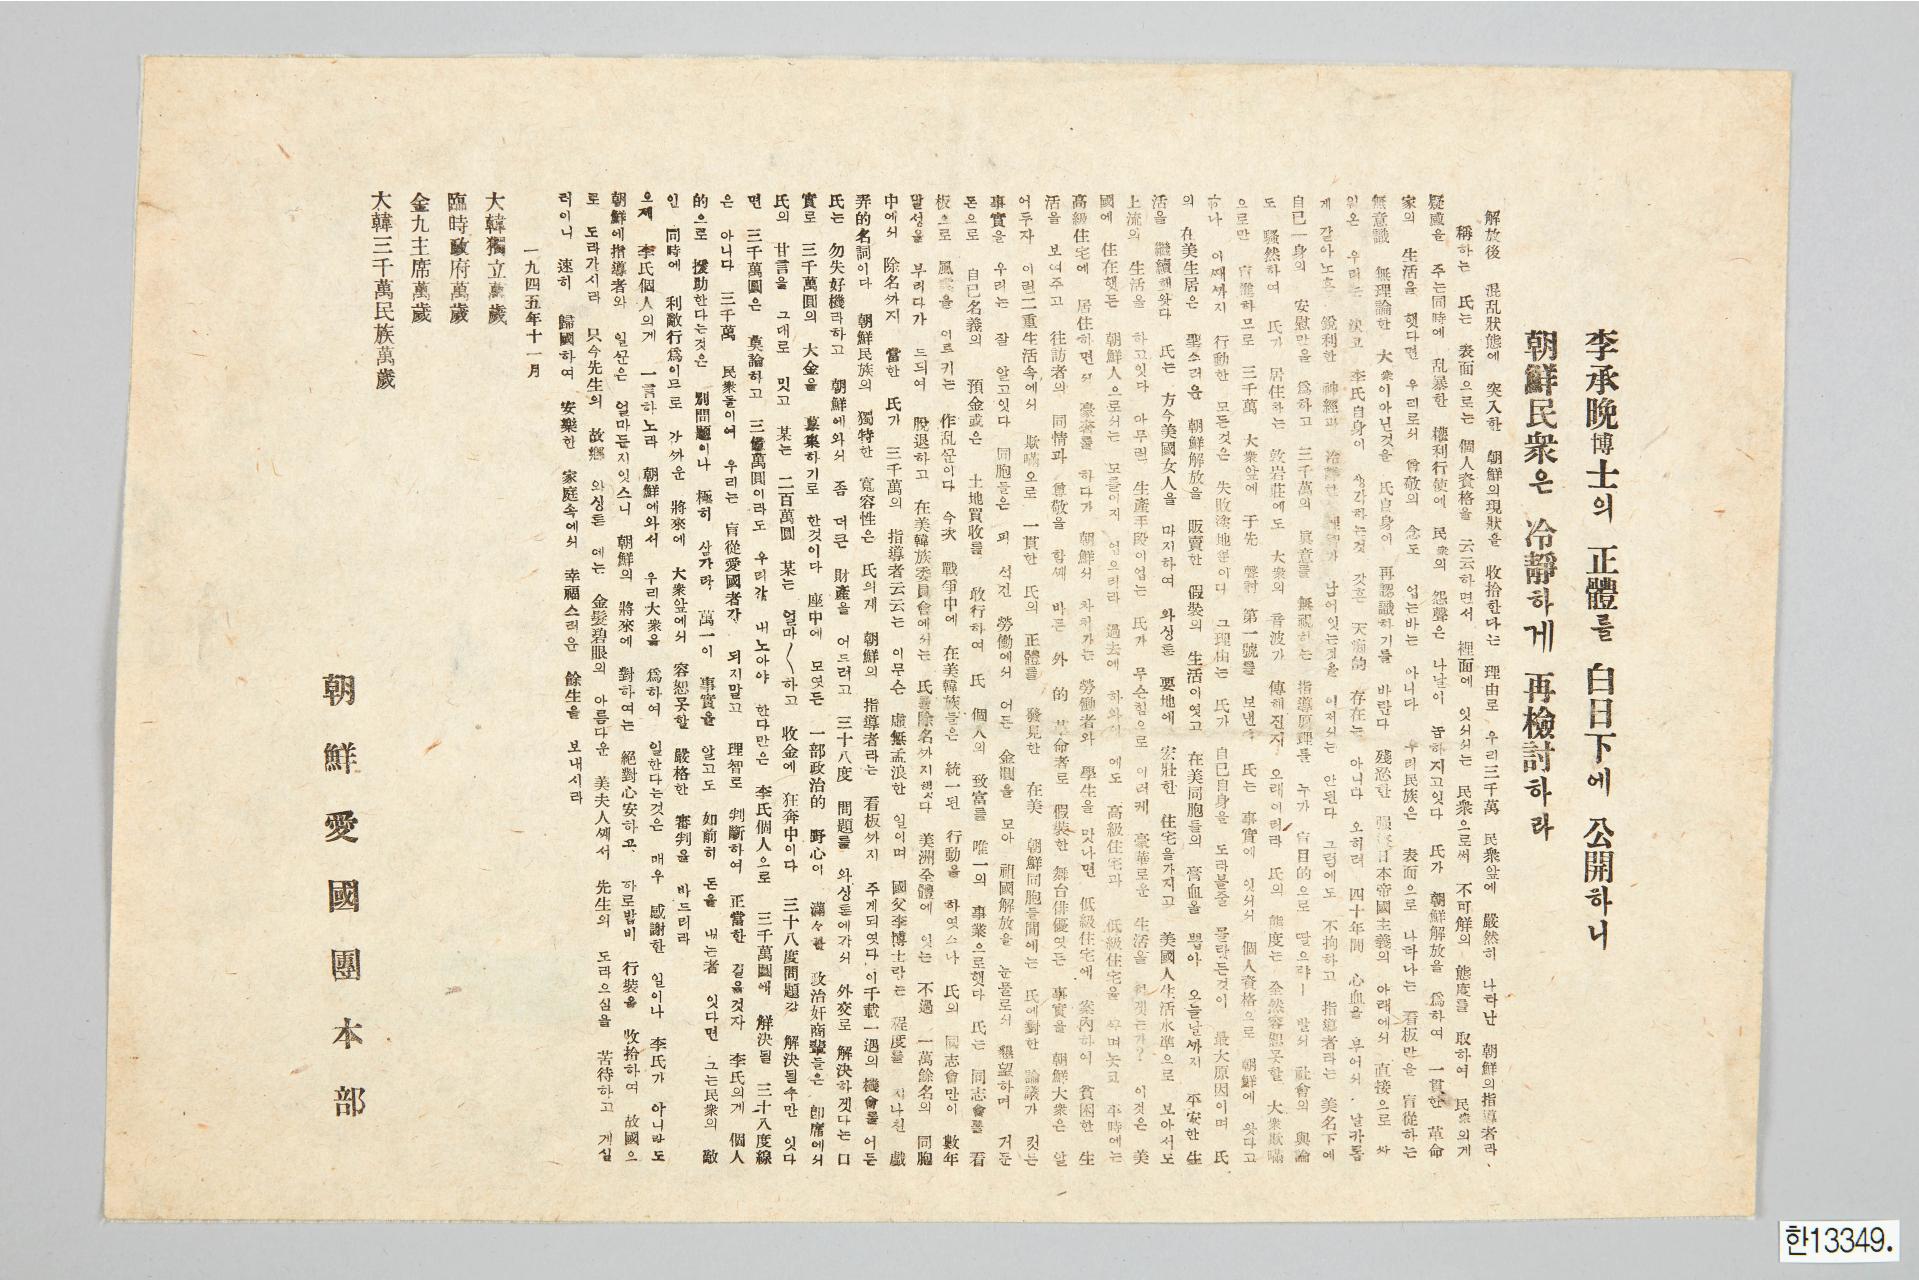 李承晩博士의 正體를 白日下에 公開하니
朝鮮民衆은 冷靜하게 再檢討하라
解放後 混乱狀態에 突入한 朝鮮의現狀을 收拾한다는 理由로 우리三千萬 民衆앞에 嚴然히 나라난 朝鮮의指導者라
稱하는 氏는 表面으로는 個人資格을 云云하면서 裡面에 잇서서는 民衆으로써 不可解의 態度를 取하여 民衆의게
疑惑을 주는同時에 乱暴한 權利行使에 民衆의 怨聲은 나날이 놉하지고잇다 氏가 朝鮮解放을 爲하여 一貫한 革命
家의 生活을 햇다면 우리로서 尊敬의 念도 업는바는 아니다 우리民族은 表面으로 나라나는 看板만을 盲從하는
無意識 無理論한 大衆이아닌것을 氏自身이 再認識하기를 바란다 殘忍한 强盜日本帝國主義의 아래에서 直接으로 싸
워온 우리는 決코 李氏自身이 생각하는것 갓흔 天痴的 存在는 아니다 오히려 四十年間 心血을 부어서 날카롭
게 갈아노흔 銳利한 神經과 冷靜한 理智가 남어잇는것을 이저서는 안된다 그럼에도 不拘하고 指導者라는 美名下에
自己一身의 安慰만을 爲하고 三千萬의 眞意를 無視하는 指導原理를 누가 盲目的으로 딸으랴ー 발서 社會의 輿論
도 騷然하여 氏가 居住하는 敦岩莊에도 大衆의 音波가 傳해진지 오래이리라 氏의 態度는 全然容恕못할 大衆欺瞞
으로만 盲進하므로 三千萬 大衆앞에 于先 聲討 第一號를 보낸다 氏는 事實에 잇서서 個人資格으로 朝鮮에 왓다고
하나 이때까지 行動한 모든것은 失敗塗地뿐이다 그理由는 氏가 自己自身을 도라볼줄 몰랏든것이 最大原因이며 氏
의 在美生居은 聖스러운 朝鮮解放을 販賣한 假裝의 生活이엿고 在美同胞들의 膏血을 뽑아 오늘날까지 平安한 生
活을 繼續햇왓다 氏는 方今美國女人을 마지하여 와싱톤 要地에 宏壯한 住宅을가지고 美國人生活水準으로 보아서도
上流의 生活을 하고잇다 아무런 生產手段이업는 氏가 무슨힘으로 이러케 豪華로운 生活을 헌겟는가? 이것은 美
國에 住在햇든 朝鮮人으로서는 모를이지 업으리라 過去에 하와이에도 高級住宅과 低級住宅을 꾸며놋코 平時에는
高級住宅에 居住하면서 豪奢를 하다가 朝鮮서 차저가는 勞働者와 學生을 맛나면 低級住宅에 案內하여 貧困한 生
活을 보여주고 往訪者의 同情과 尊敬을 함께 바든 外的 革命者로 假裝한 舞台俳優엿든 事實을 朝鮮大衆은 알
어두자 이런二重生活속에서 欺瞞으로 一貫한 氏의 正體를 發見한 在美 朝鮮同胞들間에는 氏에對한 論議가 컷는
事實을 우리는 잘 알고잇다 同胞들은 피 석긴 勞働에서 어든 金圓을 모아 祖國解放을 눈물로서 懇望하며 거둔
돈으로 自己名義의 預金或은 土地買收를 敢行하여 氏 個人의 致富를 唯一의 事業으로햇다 氏는 同志會를 看
板으로 風波을 이르키는 作乱뿐이다 今次 戰爭中에 在美韓族들은 統一된 行動을 하엿스나 氏의 同志會만이 數年
말성을 부리다가 드되여 脫退하고 在美韓族委員會에서는 氏를除名까지햇다 美洲全體에 잇는 不過 一萬餘名의 同胞
中에서 除名까지 當한 氏가 三千萬의 指導者云云는 이무슨 虛無孟浪한 일이며 國父李博士라는 程度를 지나친 戱
弄的名詞이다 朝鮮民族의 獨特한 寬容性은 氏의게 朝鮮의 指導者라는 看板까지 주게되엿다 이千載一遇의 機會를 어든
氏는 勿失好機라하고 朝鮮에와서 좀 더큰 財產을 어드려고 三十八度 問題를 와싱톤에가서 外交로 解決하겟다는 口
實로 三千萬圓의 大金을 募集하기로 한것이다 座中에 모엿든 一部政治的 野心이 滿々한 政治奸商輩들은 卽席에서
氏의 甘言을 그대로 밋고 某는 二百萬圓 某는 얼마〱하고 收金에 狂奔中이다 三十八度問題가 解決될수만 잇다
면 三千萬圓은 莫論하고 三億萬圓이라도 우리가 내노아야 한다만은 李氏個人으로 三千萬圓에 解決될 三十八度線
은 아니다 三千萬 民衆들이여 우리는 盲從愛國者가 되지말고 理智로 判斷하여 正當한 길을것자 李氏의게 個人
的으로 援助한다는것은 別問題이나 極히 삼가라 萬一이 事實을 알고도 如前히 돈을 내는者 잇다면 그는民衆의 敵
인 同時에 利敵行爲이므로 가까운 將來에 大衆앞에서 容恕못할 嚴格한 審判을 바드리라
으제 李氏個人의게 一言하노라 朝鮮에와서 우리大衆을 爲하여 일한다는것은 매우 感謝한 일이나 李氏가 아니라도
朝鮮에指導者와 일꾼은 얼마든지잇스니 朝鮮의 將來에 對하여는 絕對心安하고 하로밥비 行裝을 收拾하여 故國으
로 도라가시라 只今先生의 故鄕 와싱톤 에는 金髮碧眼의 아름다운 美夫人께서 先生의 도라으심을 苦待하고 게실
러이니 速히 歸國하여 安樂한 家庭속에서 幸福스러운 餘生을 보내시라
一九四五年十一月
大韓獨立萬歲
臨時政府萬歲
金九主席萬歲
大韓三千萬民族萬歲
朝鮮愛國團本部
한13349.